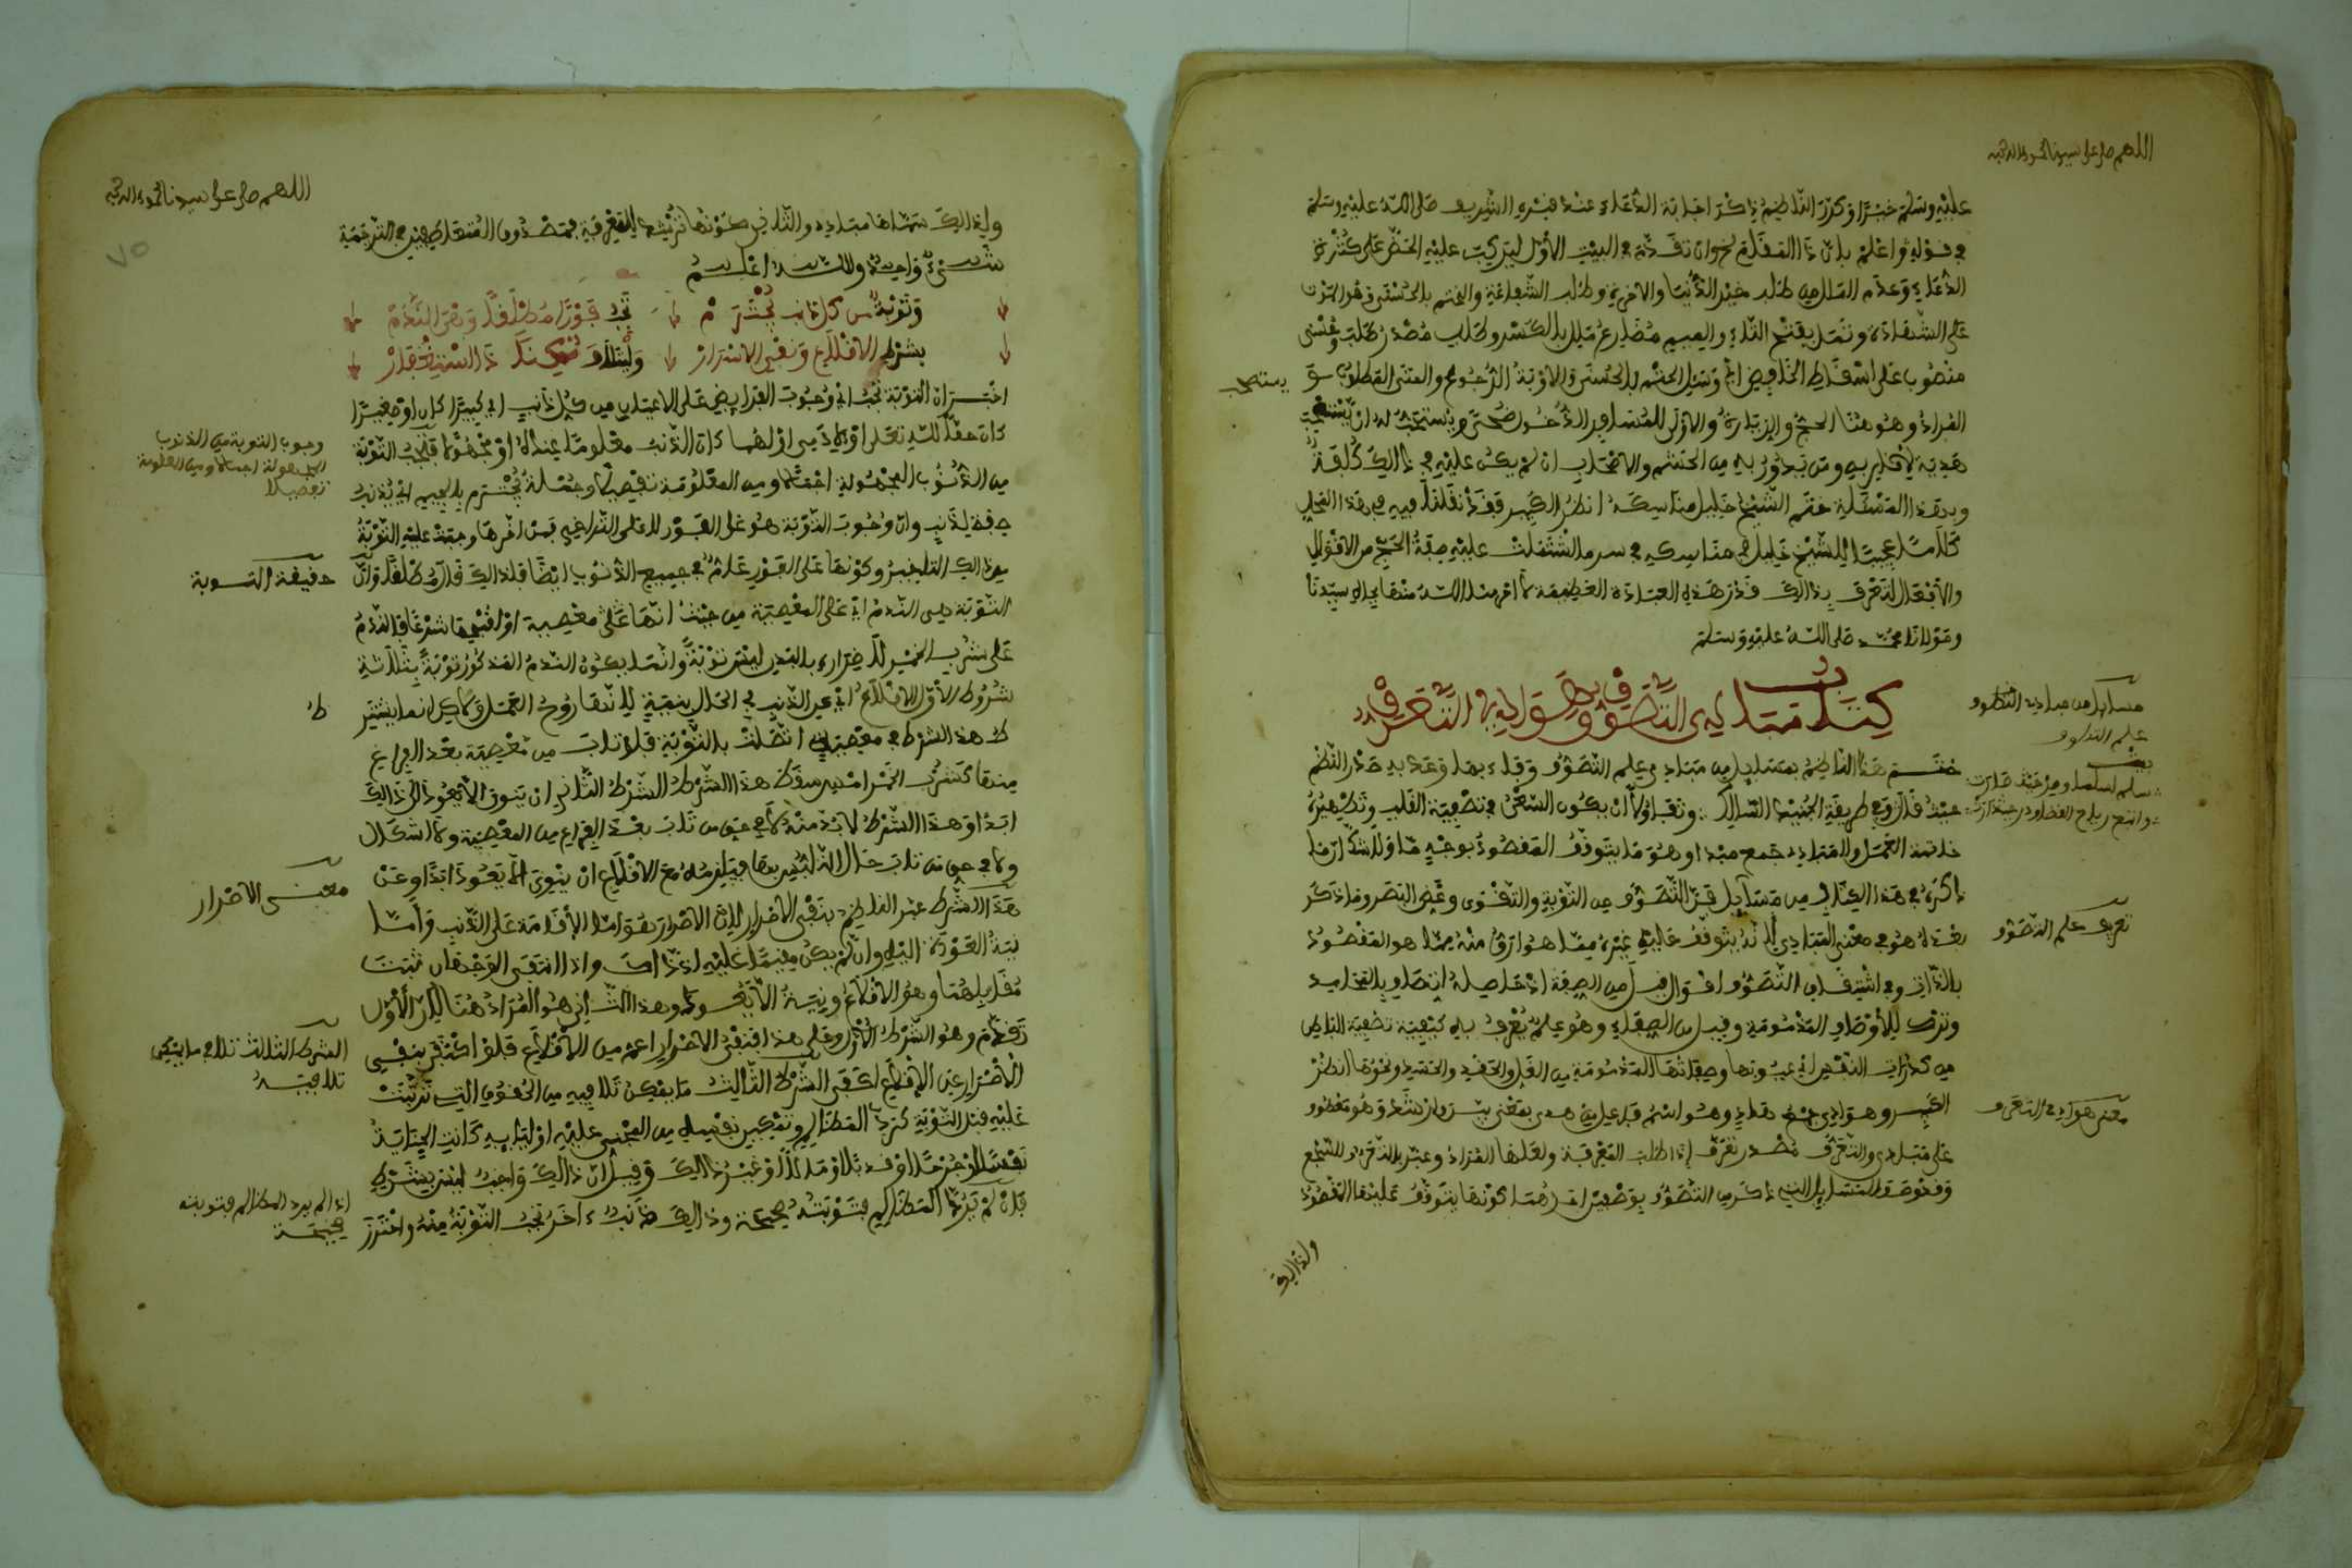 اللهم صل على سيدنا محمد وآله وصحبه
عليه وسلم خيرا وكرر الناظم ذكر اجابة الدعاء عند قبره الشريف صلى الله عليه وسلم
في قوله واعلم بان ذا المقام نحو ان تقدم في البيت الاول ليترتب عليه الحض على كثرة
الدعاء وعدم الملل من طلب خير الدنيا والاخرة وطلب الشفاعة والختم بالحسنى وهو الموت
على الشهادة وتمل بفتح التاء والميم مضارع ملل بالكسر وطلب مصدر طلب وحسنى
منصوب على اسقاط الخافض اي وسل الختم بالحسنى والاوبة الرجوع والمنى المطلوب
المراد وهو هنا الحج والزيارة والاولى للمسافر الدخول ضحى ويستحب له ان يستصحب
هدية لاقاربه ومن يدور به من الحشم والاصحاب ان لم يكن عليه في ذلك كلفة
وبهذه المسئلة ختم الشيخ خليل مناسكه انظر الكبير فقد نقلنا فيه في هذا المحل
كلاما عجيبا للشيخ خليل في مناسكه في سر ما اشتملت عليه صفة الحج من الاقوال
والافعال لتعرف بذلك قدر هذه العبادة العظيمة لا احرمنا الله منها بجاه سيدنا
ومولانا محمد صلى الله عليه وسلم
كتاب مبادي التصوف وهوادي التعرف
ختم هذا الناظم بمسايل من مبادي علم التصوف وفاء بما وعد به صدر النظم
حيث قال وفي طريقة الجنيد السالك وتفاؤلا ان يكون السعي في تصفية القلب وتطهيره
خاتمة العمل والمبادي جمع مبدا وهو ما يتوقف المقصود بوجه ما ولا شك ان ما
ذكره في هذا الكتاب من مسايل فن التصوف من التوبة والتقوى وغض البصر وما ذكر
بعده هو في معنى المبادي لانه يتوقف عليه غيره مما هو ارق منه مما هو المقصود
بالذات وفي اشتقاق التصوف اقوال قيل من الصفة اذ حاصله اتصاف بالمحامد
وترك للأوصاف المذمومة وقيل من الصفاء وهو علم يعرف به كيفية تصفية الباطن
من كدرات النفس اي عيوبها وصفاتها المذمومة من الغل والحقد والحسد ونحوها انظر
الكبير وهوادي جمع هاد وهو اسم فاعل من هدى بمعنى بين وارشد وهو معطوف
على مبادي والتعرف مصدر تعرف اذا طلب المعرفة ولعلها المراد وعبر بالتعرف للسجع
وقد وصف المسايل التي ذكر من التصوف بوصفين احدهما كونها يتوقف عليها المقصود
ولذالك
يستصحب
مسايل من مبادي التصوف
علم التصوف
تعريف علم التصوف
معنى هوادي التعرف
اللهم صل على سيدنا محمد وآله وصحبه
٧٥
ولذالك سماها مبادي والثاني كونها ترشد للمعرفة فمصدوق المتعاطفين في الترجمة
شيء واحد والله اعلم
وتوبة من كل ذنب يجترم تجب فورا مطلقا وهي الندم
بشرط الاقلاع ونفي الاصرار وليتلاف ممكنا ذا استغفار
اخبر ان التوبة تجب اي وجوب الفرايض على الاعيان من كل ذنب اي كبيرا كان او صغيرا
كان حقا لله تعلى او لادمي او لهما كان الذنب معلوما عنده او مجهولا فتجب التوبة
من الذنوب المجهولة اجمالا ومن المعلومة تفصيلا وجملة يجترم بالجيم اي يذنب
صفة لذنب وان وجوب التوبة هو على الفور لا على التراخي فمن اخرها وجبت عليه التوبة
من ذالك التاخير وكونها على الفور عام في جميع الذنوب ايضا فلذالك قال مطلقا وان
التوبة هي الندم اي على المعصية من حيث انها معصية او لقبحها شرعا فالندم
على شرب الخمر لاضراره بالبدن ليس توبة وانما يكون الندم المذكور توبة بثلاثة
شروط الاول الاقلاع اي عن الذنب في الحال بنية لانها روح العمل لاكن انما يشترط
هذا الشرط في معصية اتصلت بالتوبة فلو تاب من معصية بعد الفراغ
منها كشرب الخمر امس سقط هذا الشرط الشرط الثاني ان ينوي الا يعود الى ذالك
ابدا وهذا الشرط لا بد منه لا في حق من تاب بعد الفراغ من المعصية ولا اشكال
ولا في حق من تاب حال التلبس بها فيلزمه مع الاقلاع ان ينوي الا يعود ابدا وعن
هذا الشرط عبر الناظم بنفي الاصرار لان الاصرار هو اما الاقامة على الذنب واما
نية العودة اليه وان لم يكن مقيما عليه اذ ذاك واذا انتفى الوجهان ثبت
مقابلهما وهو الاقلاع ونية الا يعود وهذا الثاني هو المراد هنا لان الاول
تقدم وهو الشرط الاول وعلى هذا فنفي الاصرار اعم من الاقلاع فلو اكتفى بنفي
الاصرار عن الاقلاع لكفى الشرط الثالث ما يمكن تلافيه من الحقوق التي ترتبت
عليه قبل التوبة كرد المظالم وتمكين نفسه من المجني عليه او اوليائه كانت الجناية
نفسا او جرحا او قذفا او مالا او غير ذالك وقيل ان ذالك واجب ليس بشرط
فان لم يرد المظالم فتوبته صحيحة وذالك ذنب ءاخر تجب التوبة منه واحترز
وجوب التوبة من الذنوب
المجهولة اجمالا ومن المعلومة
تفصيلا
حقيقة التوبة
ط
معنى الاصرار
الشرط الثالث تلافي ما يمكن
تلافيه
اذا لم يرد المظالم فتوبته
صحيحة